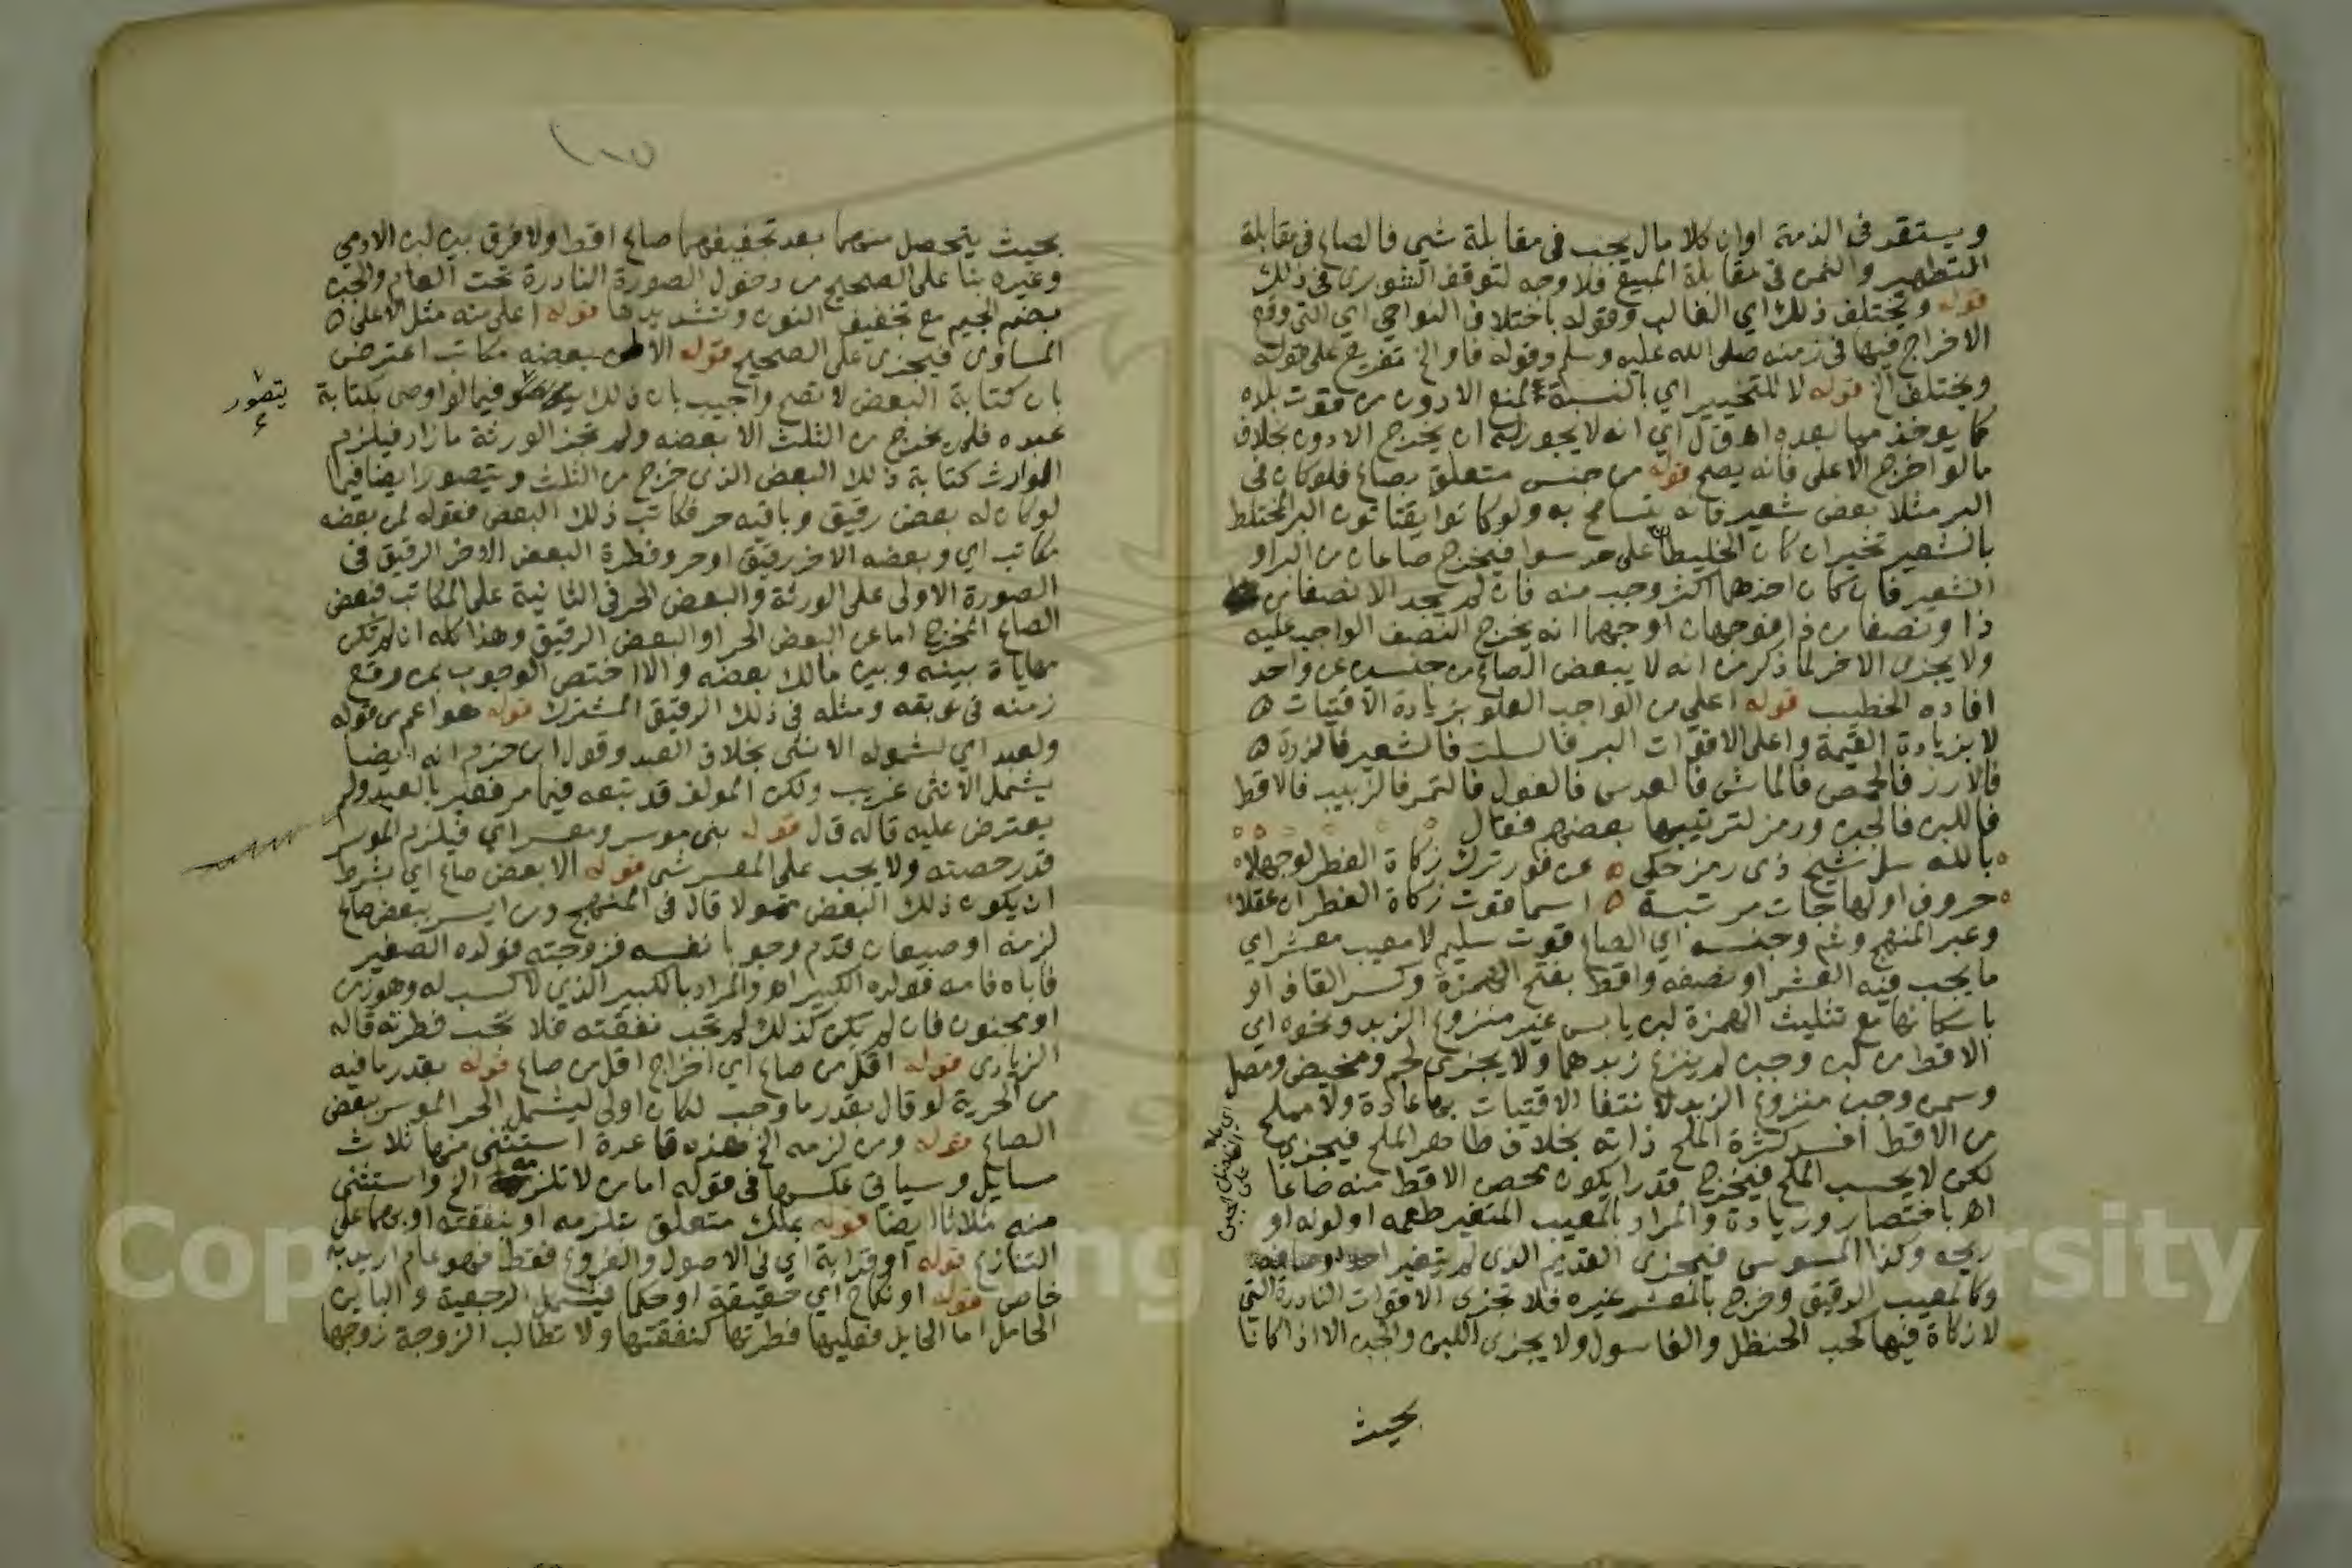 ويستقر في الذمة او ان كلا مال يجب في مقابلة شي فالصاع في مقابلة
التطهير والثمن في مقابلة المبيع فلا وجه لتوقف الشوبري في ذلك
قوله ويختلف ذلك اي الغالب وقوله باختلاف النواحي اي التي وقع
الاخراج فيها في زمنه صلى الله عليه وسلم وقوله فاو الخ تفريع على قوله
ويختلف الخ قوله لا للتخيير اي بالنسبة لمنع الادون من قوت بلده
كما يوخذ مما بعده اه ق ل اي انه لا يجوز له ان يخرج الادون بخلاف
ما لو اخرج الاعلى فانه يصح قوله من جنس متعلق بصاع فلو كان في
البر مثلا بعض شعير فانه يتسامح به ولو كانوا يقتاتون البر المختلط
بالشعير تخير ان كان الخليطان على حد سوا فيخرج صاعا من البر او
الشعير فان كان احدهما اكثر وجب منه فان لم يجد الا نصفا من
ذا ونصفا من ذا فوجهان اوجههما انه يخرج النصف الواجب عليه
ولا يجزى الاخر لما ذكر من انه لا يبعض الصاع من جنسين عن واحد
افاده الخطيب قوله اعلى من الواجب العلو بزيادة الاقتيات
لا بزيادة القيمة واعلى الاقوات البر فالسلت فالشعير فالذرة
فالارز فالحمص فالماش فالعدس فالفول فالتمر فالزبيب فالاقط
فاللبن فالجبن ورمز لترتيبها بعضهم فقال
بالله سل شيخ ذى رمز حكى عن فور ترك زكاة الفطر لو جهلا
حروف اولها جات مرتبة اسما قوت زكاة الفطر ان عقلا
وعبر المنهج وشم وجنسه اي الصاع قوت سليم لا معيب معشر اي
ما يجب فيه العشر او نصفه واقط بفتح الهمزة وكسر القاف او
باسكانها مع تثليث الهمزة لبن يابس غير منزوع الزبد ونحوه اي
الاقط من لبن وجبن لم ينزع زبدهما ولا يجزى لحم ومخيض ومصل
وسمن وجبن منزوع الزبد لانتفا الاقتيات بها عادة ولا مملح
من الاقط افسد كثرة الملح ذاته بخلاف ظاهر الملح فيجزى
لكن لا يحسب الملح فيخرج قدرا يكون محض الاقط منه صاعا
اه باختصار وزيادة والمراد بالمعيب المتغير طعمه او لونه او
ريحه وكذا المسوس فيجزى القديم الذى لم يتغير
وكالمعيب الدقيق وخرج بالمعشر غيره فلا تجزى الاقوات النادرة التي
لا زكاة فيها كحب الحنظل والغاسول ولا يجزى اللبن والجبن الا اذا كانا
بحيث
بحيث يتحصل منهما بعد تجفيفهما صاع اقط ولا فرق بين لبن الادمي
وغيره بنا على الصحيح من دخول الصورة النادرة تحت العام والجبن
بضم الجيم مع تخفيف النون وتشديدها قوله اعلى منه مثل الاعلى
المساوى فيجزى على الصحيح قوله الا من بعضه مكاتب اعترض
بان كتابة البعض لا تصح واجيب بان ذلك فيما لو اوصى بكتابة
يتصور
عبده فلم يخرج من الثلث الا بعضه ولم تجز الورثة ما زاد فيلزم
الوارث كتابة ذلك البعض الذى خرج من الثلث ويتصور ايضا فيما
لو كان له بعض رقيق وباقيه حر فكاتب ذلك البعض فقوله لمن بعضه
مكاتب اي وبعضه الاخر رقيق او حر وفطرة البعض الاخر الرقيق في
الصورة الاولى على الورثة والبعض الحر في الثانية على المكاتب فبعض
الصاع المخرج اما عن البعض الحر او البعض الرقيق وهذا كله ان لم تكن
مهاياة بينه وبين مالك بعضه والا اختص الوجوب بمن وقع
زمنه في نوبته ومثله في ذلك الرقيق المشترك قوله هو اعم من قوله
ولعبد اي لشموله الانثى بخلاف العبد وقول ابن حزم انه ايضا
يشمل الانثى غريب ولكن المولف قد تبعه فيما مر فعبر بالعبد ولم
يعترض عليه قاله ق ل قوله بنى موسر ومعسر اي فيلزم الموسر
قدر حصته ولا يجب على المعسر شى قوله الا بعض صاع اي بشرط
ان يكون ذلك البعض متمولا قال في المنهج ومن ايسر ببعض صاع
لزمه او صيعان قدم وجوبا نفسه فزوجته فولده الصغير
فاباه فامه فولده الكبير اه والمراد بالكبير الذي لا كسب له وهو زمن
او مجنون فان لم يكن كذلك لم تجب نفقته فلا تجب فطرته قاله
الزيادى قوله اقل من صاع اي اخراج اقل من صاع قوله بقدر ما فيه
من الحرية لو قال بقدر ما وجب لكان اولى ليشمل الحر الموسر ببعض
الصاع قوله ومن لزمه الخ هذه قاعدة استثنى منها ثلاث
مسايل وسياتى عكسها في قوله اما من لا تلزمه الخ واستثنى
منه ثلاثا ايضا قوله بملك متعلق بتلزمه او بنفقته او بهما على
التنازع قوله او قرابة اي في الاصول والفروع فقط فهو عام اريد به
خاص قوله او نكاح اي حقيقة او حكما فيشمل الرجعية والباين
الحامل اما الحايل فعليها فطرتها كنفقتها ولا تطالب الزوجة زوجها